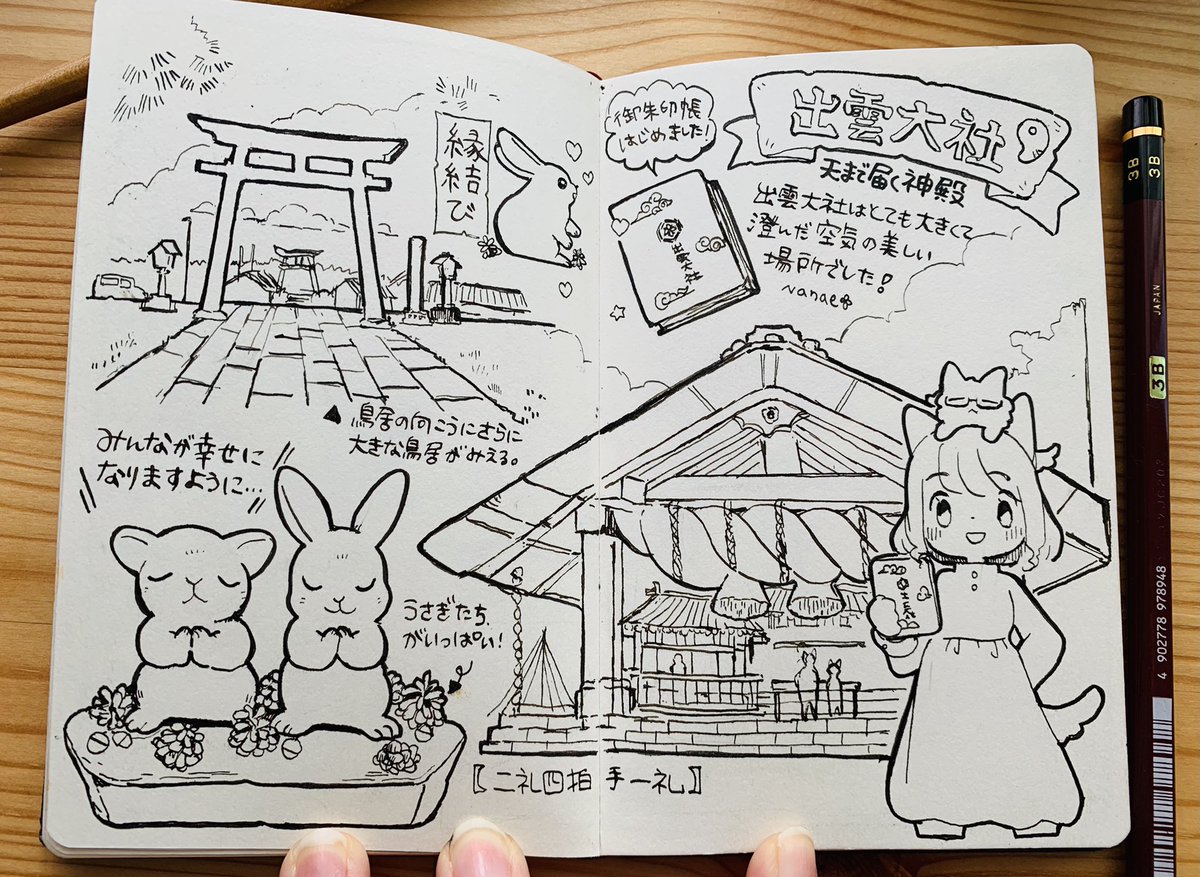 縁結び
▲鳥居の向こうにさらに
大きな鳥居がみえる。
みんなが幸せに
なりますように…
うさぎたち
がいっぱい!
御朱印帳
はじめました!
出雲大社
天まで届く神殿
出雲大社はとても大きくて
澄んだ空気の美しい
場所でした!
~nanae
出雲大社
【二礼四拍手一礼】
3B
3B
JAPAN
3B
4 902778 978948